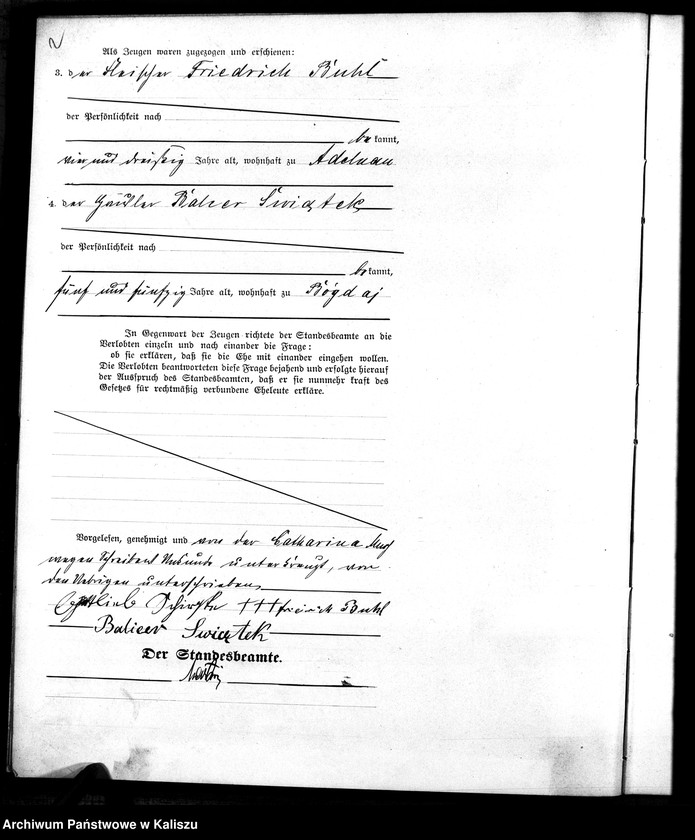 Als Zeugen waren zugezogen und erschienen:
3. der Fleischer Friedrich Buhl
der Persönlichkeit nach
bekannt,
ein und dreißig Jahre alt, wohnhaft zu Adelnau
4. der Händler Balcer Świątek
der Persönlichkeit nach
bekannt,
fünf und fünfzig Jahre alt, wohnhaft zu Bógdaj
In Gegenwart der Zeugen richtete der Standesbeamte an die
Verlobten einzeln und nach einander die Frage:
ob sie erklären, daß sie die Ehe mit einander eingehen wollen.
Die Verlobten beantworteten diese Frage bejahend und erfolgte hierauf
der Ausspruch des Standesbeamten, daß er sie nunmehr kraft des
Gesetzes für rechtmäßig verbundene Eheleute erkläre.
Vorgelesen, genehmigt und von der Catharina
wegen Schreibens Unkunde unterkreuzt, von
den Uebrigen unterschrieben
Gottlieb +++ Friedrich Buhl
Balicer Swiątek
Der Standesbeamte.
Archiwum Państwowe w Kaliszu